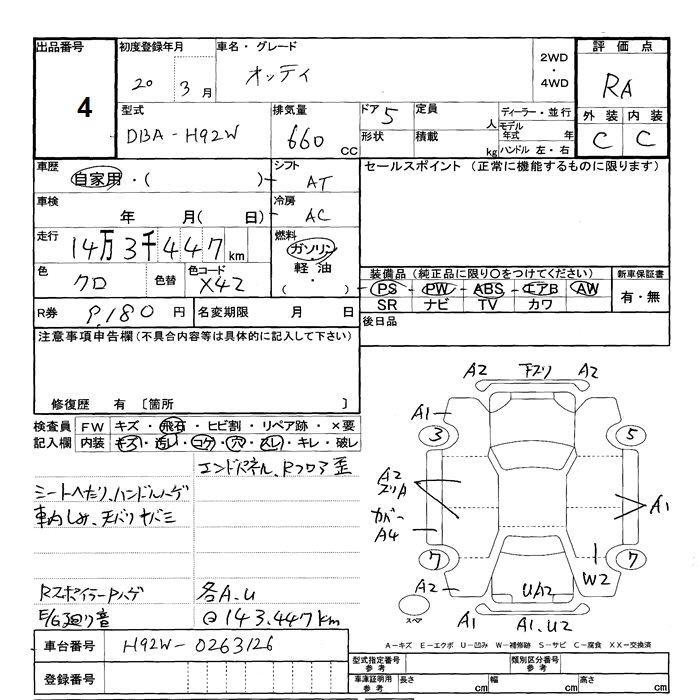 出品番号
4
初度登録年月
20 3月
車名・グレード
オッティ
2WD
・
4WD
評価点
RA
外装 内装
C C
型式
DBA-H92W
排気量
660 CC
ドア 5
形状
定員 人
積載 kg
ディーラー・並行
モデル年式 年
ハンドル 左・右
車歴
自家用・( )
シフト
AT
車検
年 月( 日)
冷房
AC
走行
14万3千447km
燃料
ガソリン
・
軽油
・
( )
色
クロ
色替
色コード
X42
R券 9,180円
名変期限 月 日
セールスポイント (正常に機能するものに限ります)
装備品 (純正品に限り○をつけてください)
PS PW ABS エアB AW
SR ナビ TV カワ
新車保証書
有・無
後日品
注意事項申告欄(不具合内容等は具体的に記入して下さい)
修復歴 有 〔箇所 〕
検査員記入欄
FW キズ・飛石・ヒビ割・リペア跡・×要
内装 キズ・汚レ・コゲ・穴・スレ・キレ・破レ
エンドパネル、Rフロア歪
シートへたり、ハンドルハゲ
車内しみ、天バリヤバミ
Rスポイラー Pハゲ
E/G廻り音
各A.U
@143.447km
車台番号 H92W-0263126
登録番号
A2 下ズリ A2
A1
3 5
A2
ズリA
カバー
A4
A1
7 7
A2
W2
UA2
スペア
A1 A1.U2
A-キズ E-エクボ U-凹み W-補修跡 S-サビ C-腐食 XX-交換済
型式指定番号 参考
類別区分番号 参考
車庫証明用 参考
長さ cm
幅 cm
高さ cm